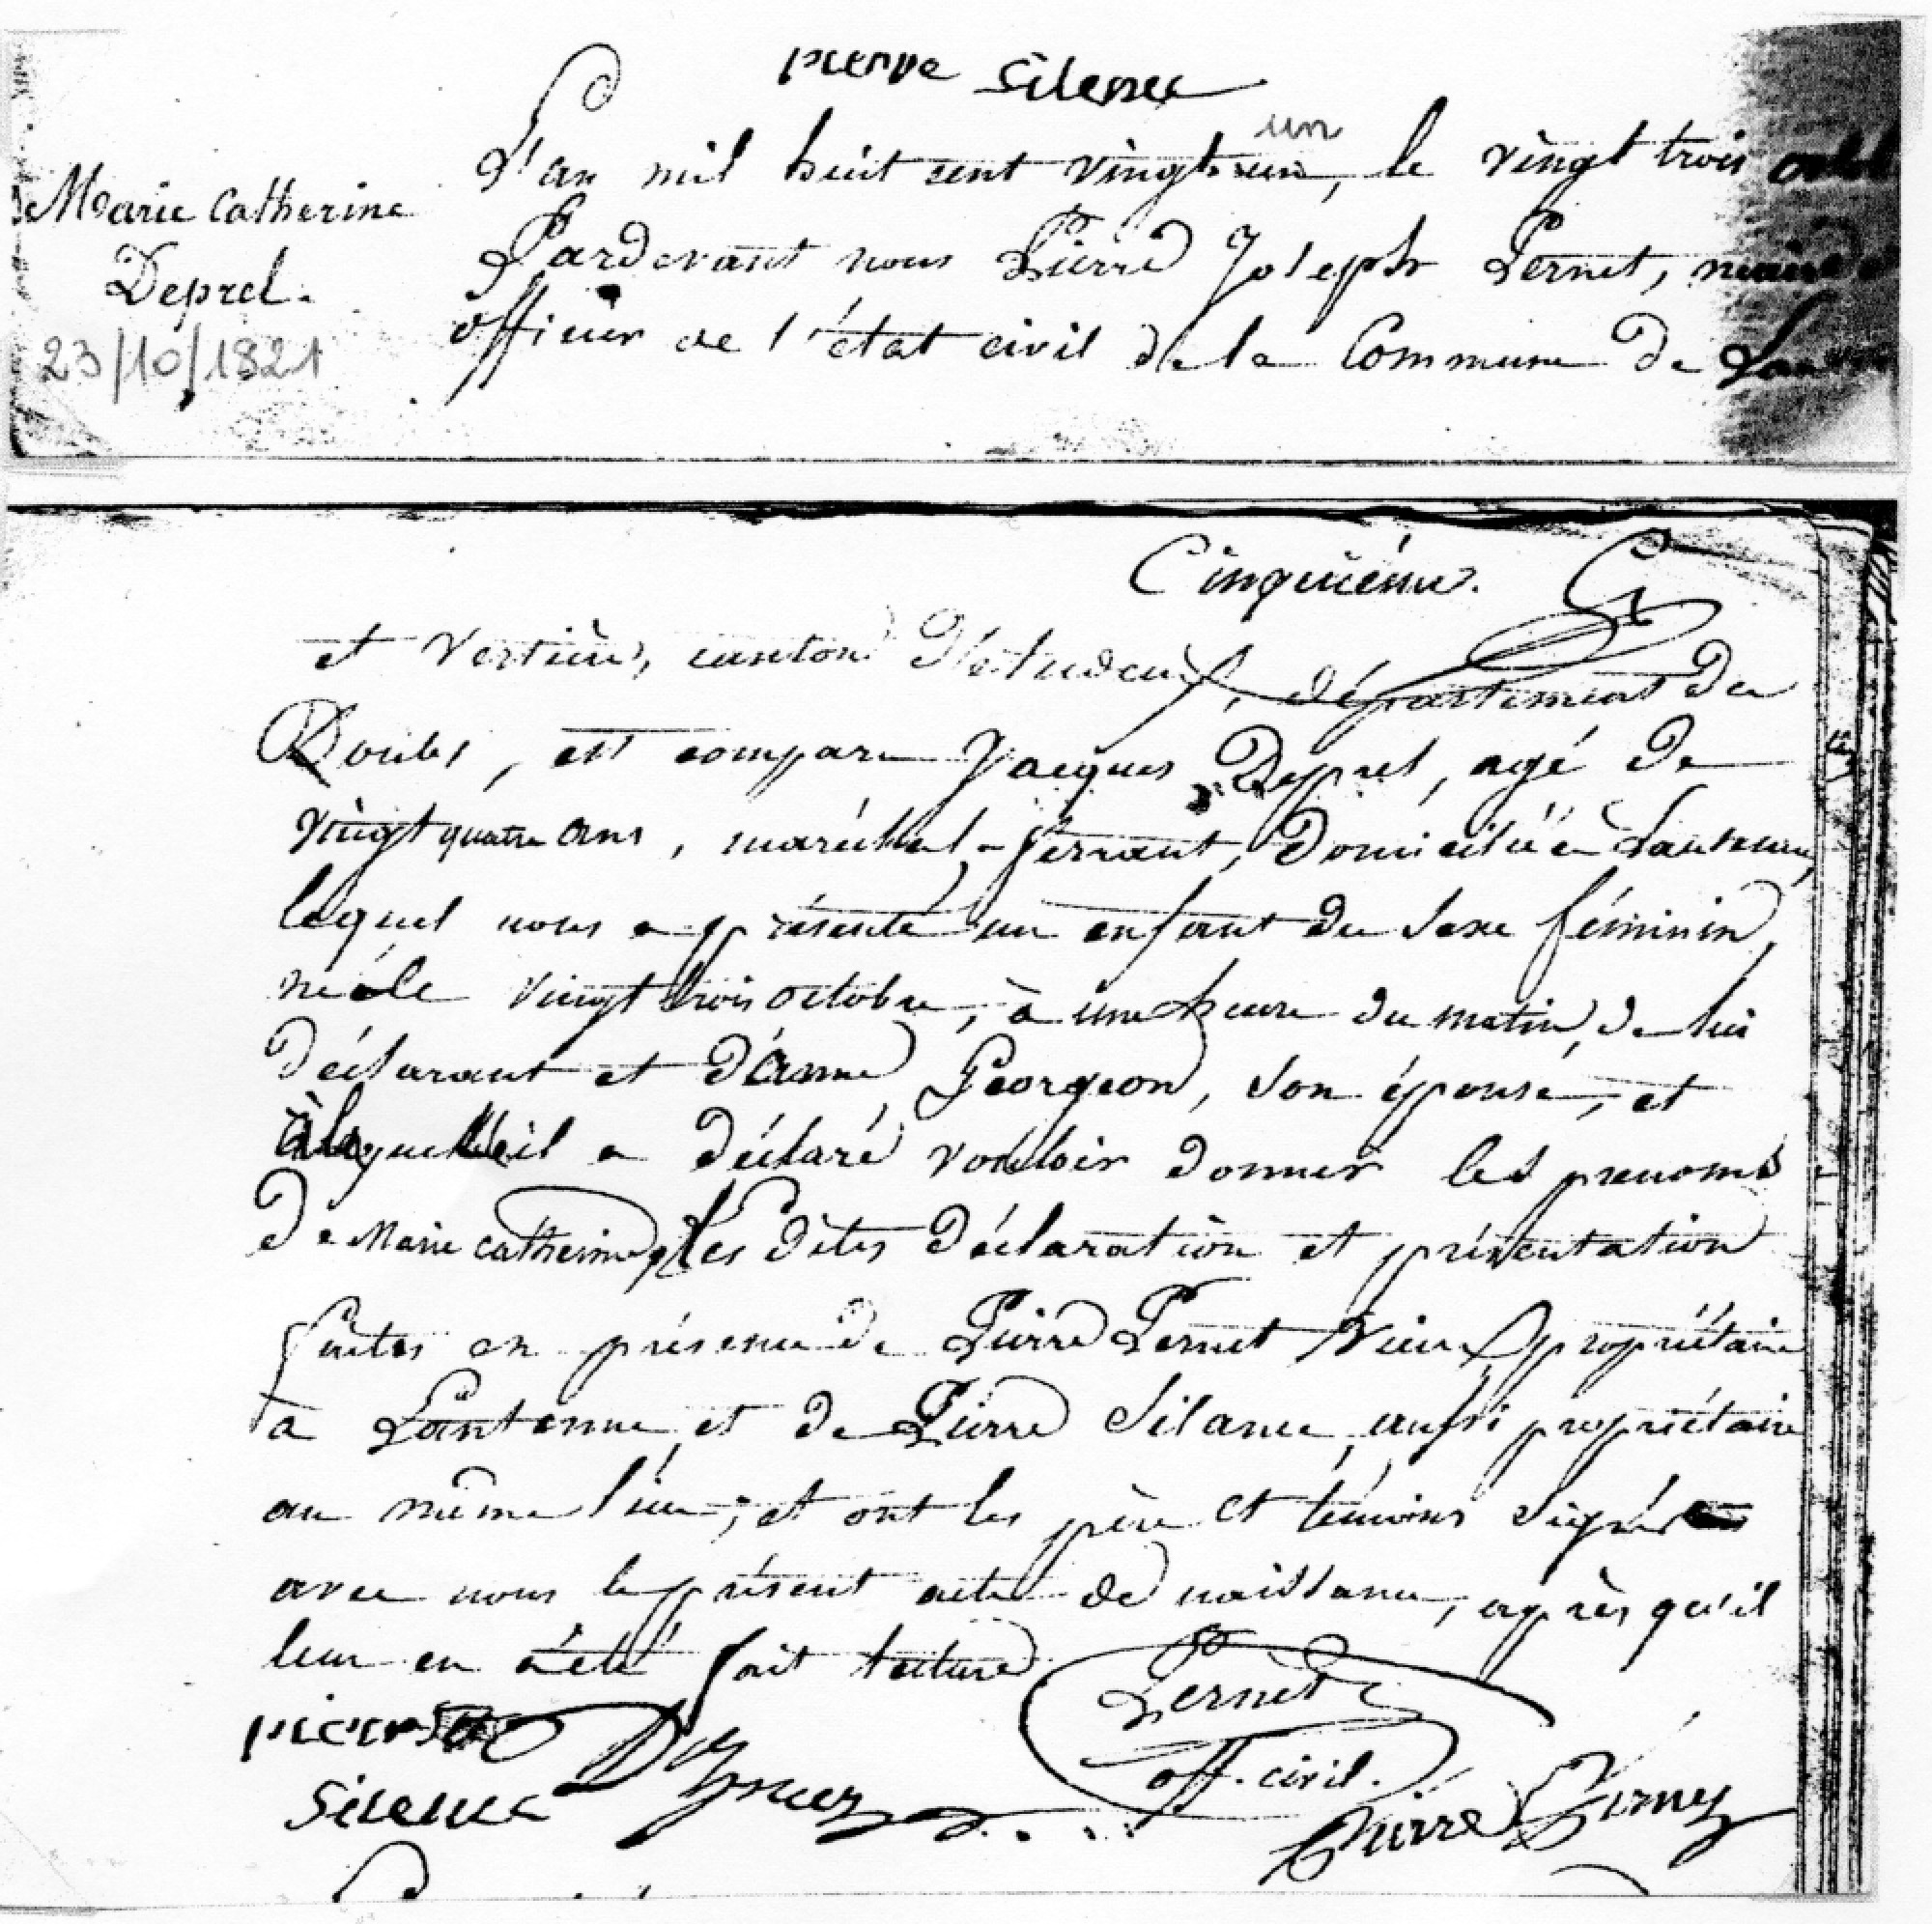 pierre Silence
L'an mil huit cent vingt un, le vingt trois octob
un
Marie Catherine
Deprel.
23/10/1821
Pardevant nous Pierre Joseph Pernet, maire
officier de l'état civil de la Commune de Lan
Cinquième.
et Vertière, canton d'Audeux, département du
Doubs, est comparu Jacques Deprel, agé de
vingt quatre ans, maréchal-ferrant, Domicilié à Lantenne,
lequel nous a présenté un enfant du Sexe féminin,
née le vingt trois octobre, à une heure du matin, de lui
déclarant et d'Anne Georgeon, Son épouse, et
à laquelle il a déclaré vouloir donner les prenoms
De Marie Catherine, les dites déclaration et présentation
faites en présence de Pierre Pernet vieux, propriétaire
à Lantenne, et de Pierre Silance, aussi propriétaire
au même lieu; et ont les père et témoins signés
avec nous le présent acte de naissance, après qu'il
leur en a été fait lecture
Pernet
off. civil.
pierre
Silence
Pierre Perney